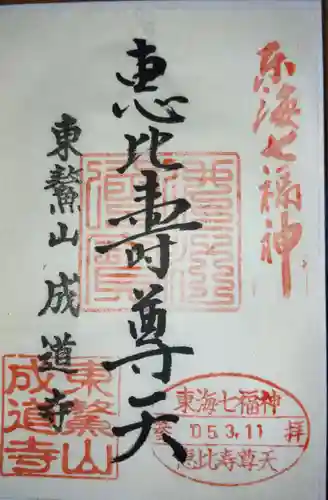 東海七福神
恵比寿尊天
東鰲山成道寺
東鰲山
成道寺
東海七福神
参 '05.3.11 拝
恵比寿尊天